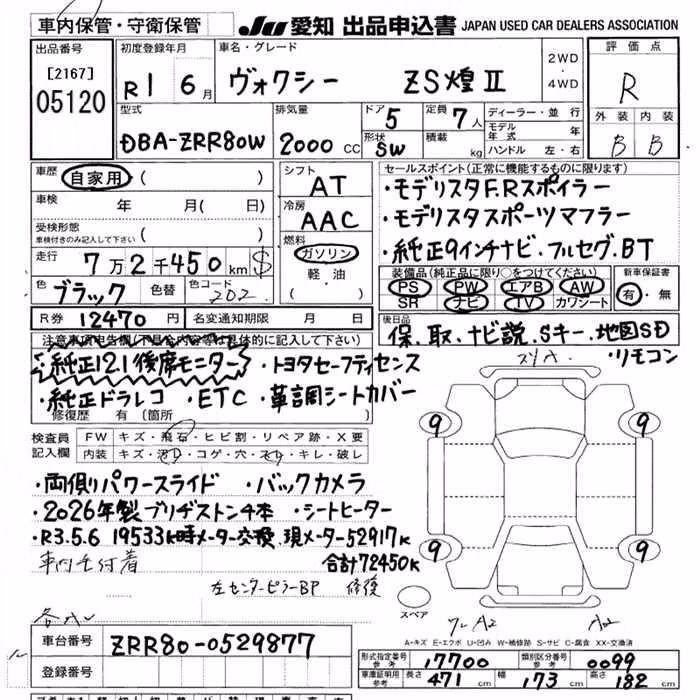 車内保管・守衛保管 JU 愛知 出品申込書 JAPAN USED CAR DEALERS ASSOCIATION
出品番号 初度登録年月 車名・グレード 2WD ・ 4WD 評価点
[2167] 05120 R1 6月 ヴォクシー ZS煌Ⅱ R
外装 内装
B B
型式 排気量 ドア 定員 ディーラー・並行
DBA-ZRR80W 2000cc 5 7人 モデル年式 年
形状 SW 積載 kg ハンドル 左・右
車歴 自家用 ( )
車検 年 月( 日)
受検形態 車検付きのみ記入して下さい ( )
走行 7万2千450km $
色 ブラック 色替 色コード 202
R券 12470円 名変通知期限 月 日
シフト AT
冷房 AAC
燃料 ガソリン
軽・油
セールスポイント(正常に機能するものに限ります)
・モデリスタF.Rスポイラー
・モデリスタスポーツマフラー
・純正9インチナビ・フルセグ.BT
装備品(純正品に限り○をつけてください) 新車保証書
PS PW エアB AW 有・無
SR ナビ TV カワシート
後日品
保.取.ナビ説.Sキー.地図SD
・リモコン
注意事項申告欄(不具合内容等は具体的に記入して下さい)
・純正12.1後席モニター ・トヨタセーフティセンス
・純正ドラレコ ・ETC ・革調シートカバー
修復歴 有 (箇所 )
検査員記入欄 FW キズ・飛石・ヒビ割・リペア跡・X要
内装 キズ・汚れ・コゲ・穴・スレ・キレ・破レ
・両側パワースライド ・バックカメラ
・2026年製ブリヂストン4本 ・シートヒーター
・R3.5.6 19533k時メーター交換.現メーター52917k
合計72450k
左センターピラーBP 修復
9 9
9 9
スペア
A2
A-キズ E-エクボ U-凹み W-補修跡 S-サビ C-腐食 XX-交換済
車台番号 ZRR80-0529877
登録番号
形式指定番号 参考 17700 類別区分番号 参考 0099
車庫証明用 参考 長さ 471cm 幅 173cm 高さ 182cm